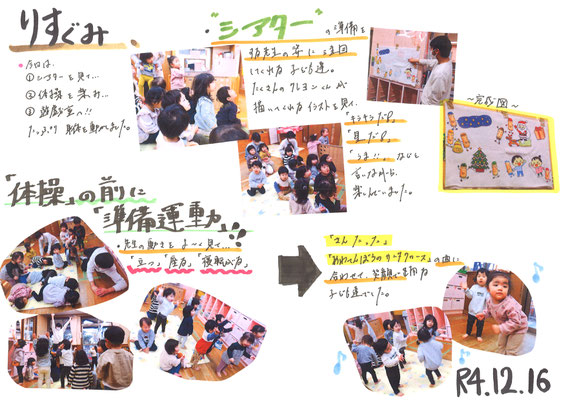 りすぐみ
今日は、
①シアターを見て…
②体操を楽しみ…
③遊戯室へ!!
たっぷり身体を動かしました。
"シアター"の準備を
する先生の姿に注目
してくれた子ども達。
たくさんのクレヨンくんが
描いてくれたイラストを見て、
「キラキラだ!」
「星だ!」
「うま!!」などと
言いながら、
楽しんでいました。
～完成図～
「体操」の前に
「準備運動」!!
・先生の動きをよ～く見て…
「立つ」「座る」「寝転がる」
「さんたった」
「あわてんぼうのサンタクロース」の曲に
合わせて、笑顔で踊る
子ども達でした。
R4.12.16